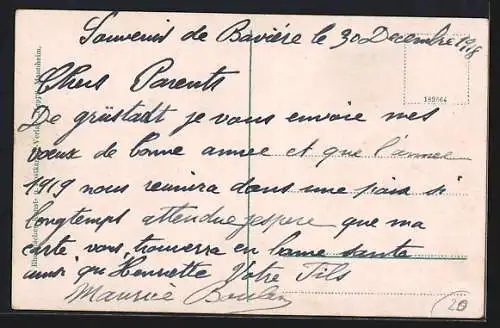 Souvenir de Baviére le 30 Decembre 1918
Chers Parents
De grüstadt je vous envoie mes
voeux de bonne annee et que l'annee
1919 nous reunira dans une paix si
longtemps attendue j'espere que ma
carte vous trouvera en bonne sante
ainsi qu'Henriette Votre Fils
Maurice
182664
20